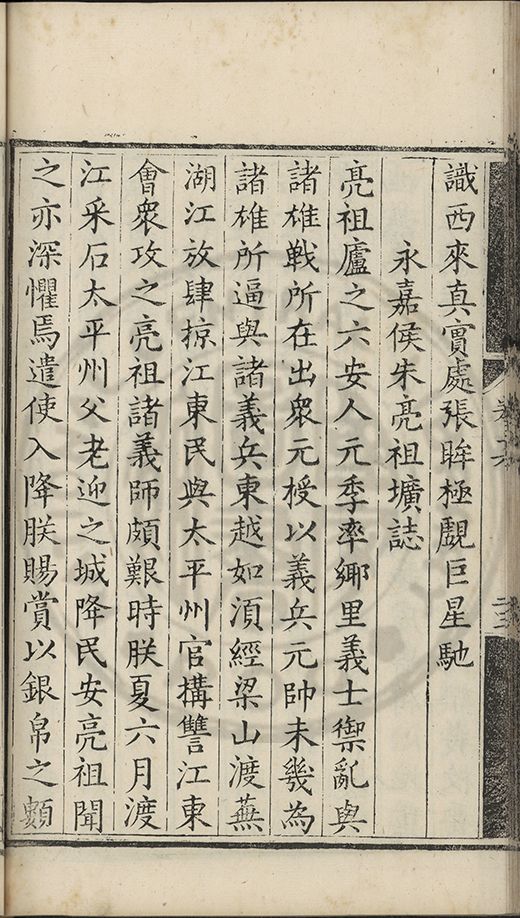 識西來真實處張眸極覷巨星馳
永嘉侯朱亮祖壙誌
亮祖廬之六安人元季率鄉里義士禦亂與
諸雄戰所在出衆元授以義兵元帥未幾為
諸雄所逼與諸義兵東越如湏經梁山渡蕪
湖江放肆掠江東民與太平州官搆讐江東
會衆攻之亮祖諸義師頗艱時朕夏六月渡
江采石太平州父老迎之城降民安亮祖聞
之亦深懼焉遣使入降朕賜賞以銀帛之顡